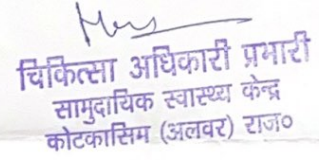 चिकित्सा अधिकारी प्रभारी
सामुदायिक स्वास्थ्य केन्द्र
कोटकासिम (अलवर) राज०